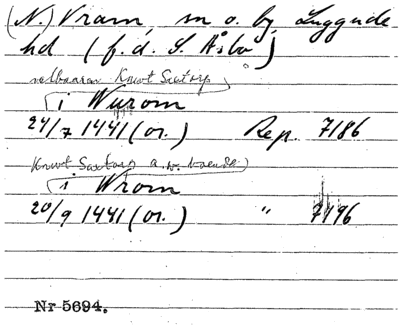 (N.) Vram, sn o. by, Luggude
hd (f.d. S. Åsbo)
velbaaren Knwt Saxtorp
i Wurom
24/7 1441 (or.) Rep. 7186
Knwt Saxtorp a.w.
i Wrom
20/9 1441 (or.) " 7196
Nr 5694.